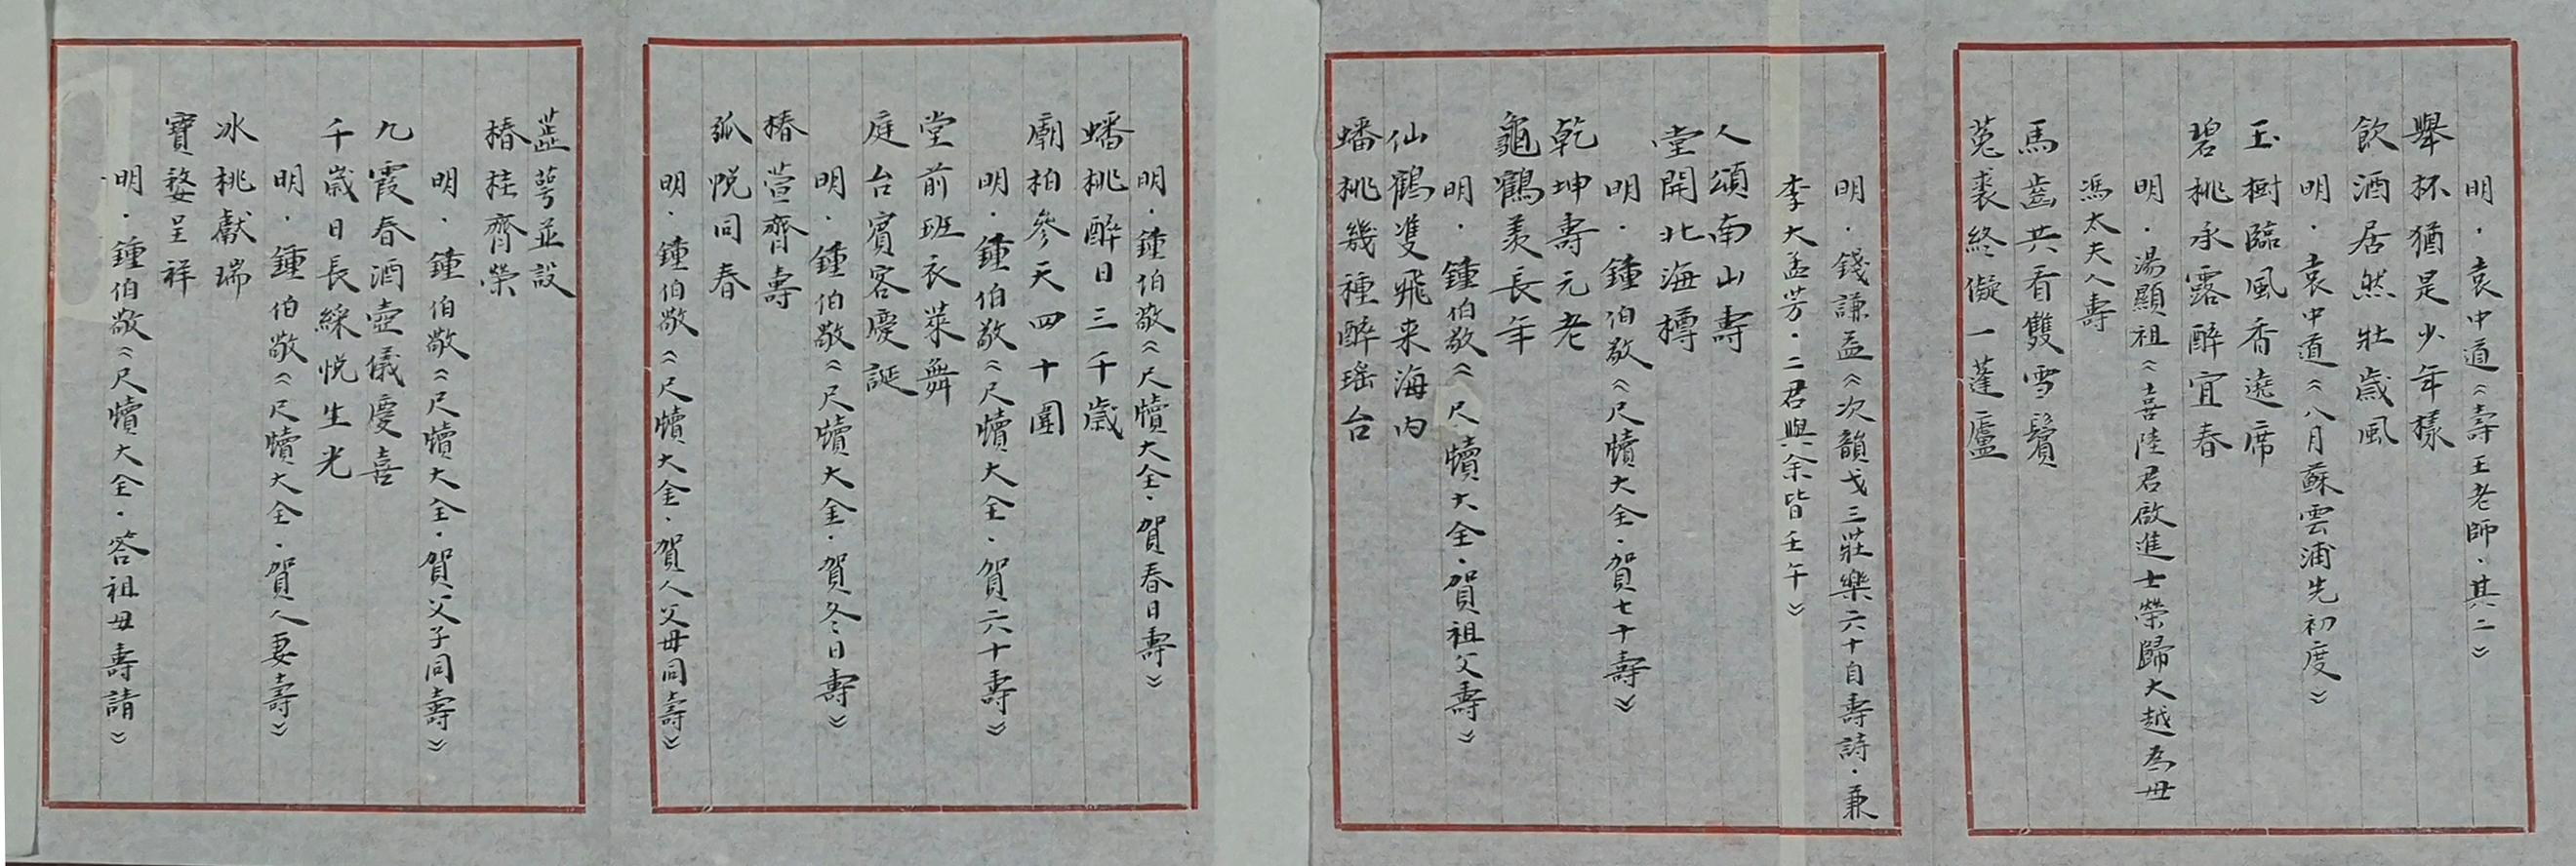 明．袁中道《壽王老師．其二》
舉杯猶是少年樣
飲酒居然壯歲風
明．袁中道《八月蘇雲浦先初度》
玉樹臨風香遶席
碧桃承露醉宜春
明．湯顯祖《喜陸君啟進士榮歸大越為母
馮太夫人壽
馬齒共看雙雪鬢
菟裘終儗一蓬廬
明．錢謙益《次韻戈三莊樂六十自壽詩．兼
李大孟芳．二君與余皆壬午》
人頌南山壽
堂開北海樽
明．鍾伯敬《尺牘大全．賀七十壽》
乾坤壽元老
龜鶴羡長年
明．鍾伯敬《尺牘大全．賀祖父壽》
仙鶴隻飛来海內
蟠桃幾種醉瑤台
明．鍾伯敬《尺牘大全．賀春日壽》
蟠桃醉日三千歲
廟柏參天四十圍
明．鍾伯敬《尺牘大全．賀六十壽》
堂前班衣萊舞
庭台賓客慶誕
明．鍾伯敬《尺牘大全．賀冬日壽》
椿萱齊壽
弧悅同春
明．鍾伯敬《尺牘大全．賀人父母同壽》
蓝萼並設
椿桂齊榮
明．鍾伯敬《尺牘大全．賀父子同壽》
九霞春酒壺儀慶喜
千歲日長綵悅生光
明．鍾伯敬《尺牘大全．賀人妻壽》
冰桃獻瑞
寶婺呈祥
明．鍾伯敬《尺牘大全．答祖母壽請》